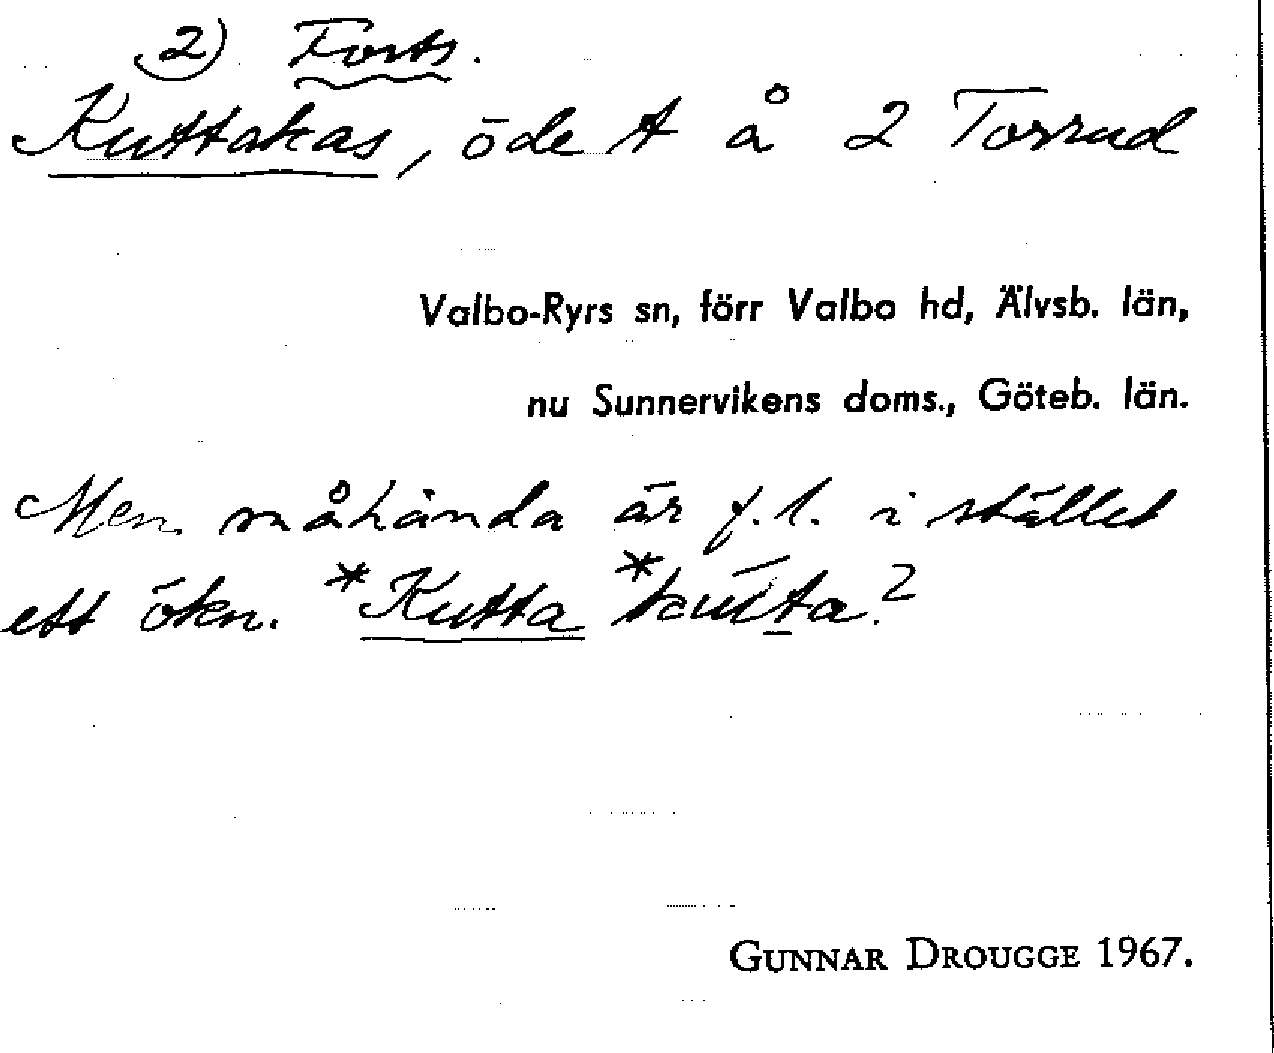 2) Forts.
Kuttakas, öde t å 2 Torrud
Valbo-Ryrs sn, förr Valbo hd, Älvsb. län,
nu Sunnervikens doms., Göteb. län.
Men måhända är f.l. i stället
ett ökn. *Kutta *
GUNNAR DROUGGE 1967.